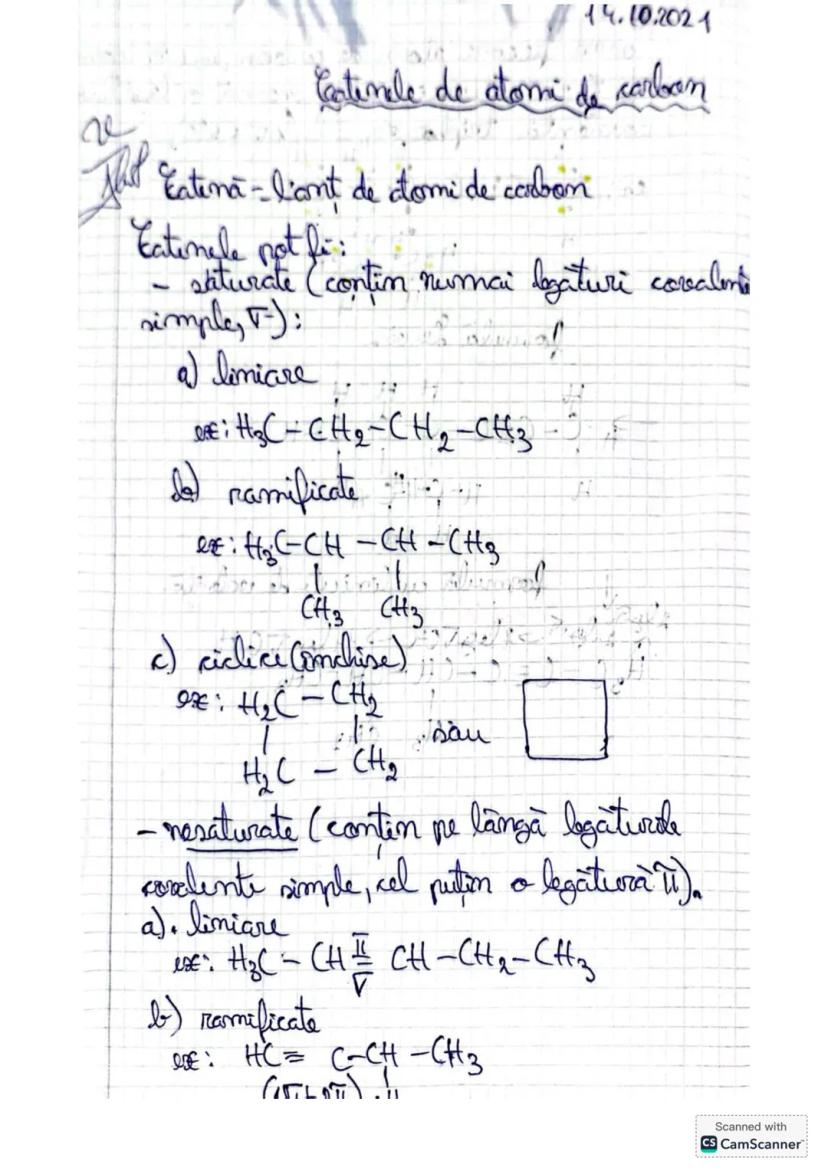 14.10.2021
Catenele de atomi de carbon
Catenă - lanț de atomi de carbon
Catenele pot fi:
- saturate (conțin numai legături covalente
simple, σ):
a) liniare
ex: H3C - CH2 - CH2 - CH3
b) ramificate
ex: H3C - CH - CH - CH3
CH3 CH3
c) ciclice (închise)
ex: H2C - CH2
sau
H2C - CH2
- nesaturate (conțin pe lângă legăturile
covalente simple, cel puțin o legătură π).
a). liniare
π
ex: H3C - CH = CH - CH2 - CH3
σ
b) ramificate
ex: HC ≡ C - CH - CH3
Scanned with
CS CamScanner